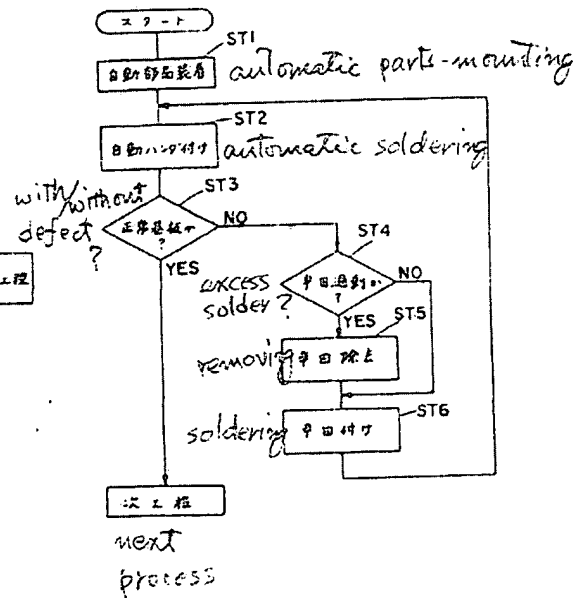 スタート
ST1
自動部品装着
automatic parts-mounting
ST2
自動ハンダ付け
automatic soldering
ST3
with/without
defect
?
正常基板か
?
NO
YES
ST4
excess
solder?
半田過剰か
?
NO
YES
ST5
removing
半田除去
ST6
soldering
半田付け
工程
次工程
next
process